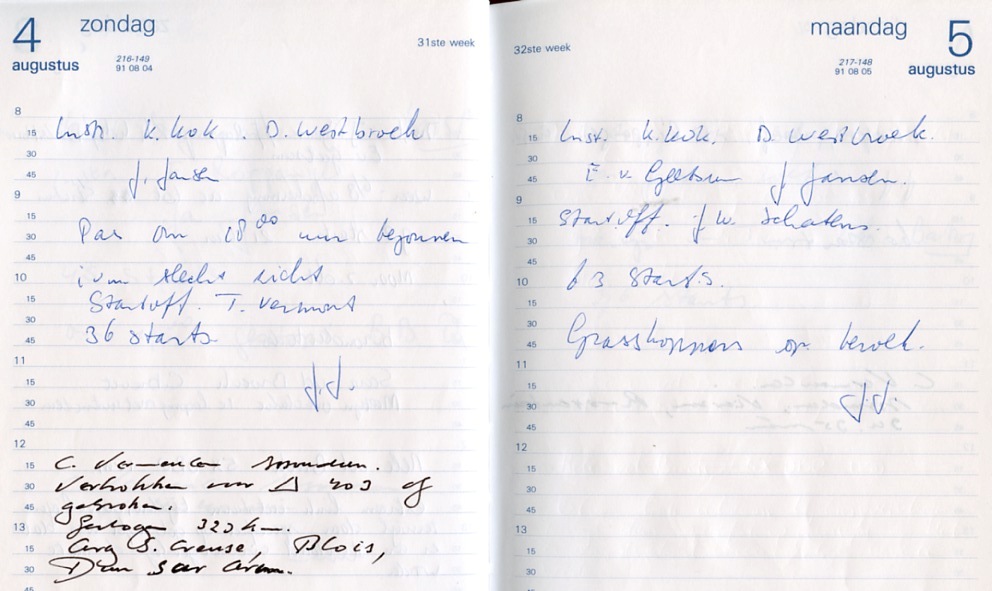 4 zondag
augustus
216-149
91 08 04
31ste week
8
15 Instr. K. Kok. D. Westbroek
30
45 J. Jansen
9
15
30 Pas om 18 00 uur begonnen
45
10 ivm slecht zicht
15 Startoff. T. Vermont
30 36 starts
45
11
15 J.J.
30
45
12
15 C.
30 Vertrokken voor △ 403 of
45 gebroken.
13 Gevlogen 323 km.
15 Arg S. Creuse, Blois,
30
45
32ste week
maandag 5
augustus
217-148
91 08 05
8
15 Instr. K. Kok. D. Westbroek.
30
45 J Jansen.
9
15 Startoff. J W.
30
45
10 63 starts.
15
30
45 Grashoppers op bezoek.
11
15
30 J.J.
45
12
15
30
45
13
15
30